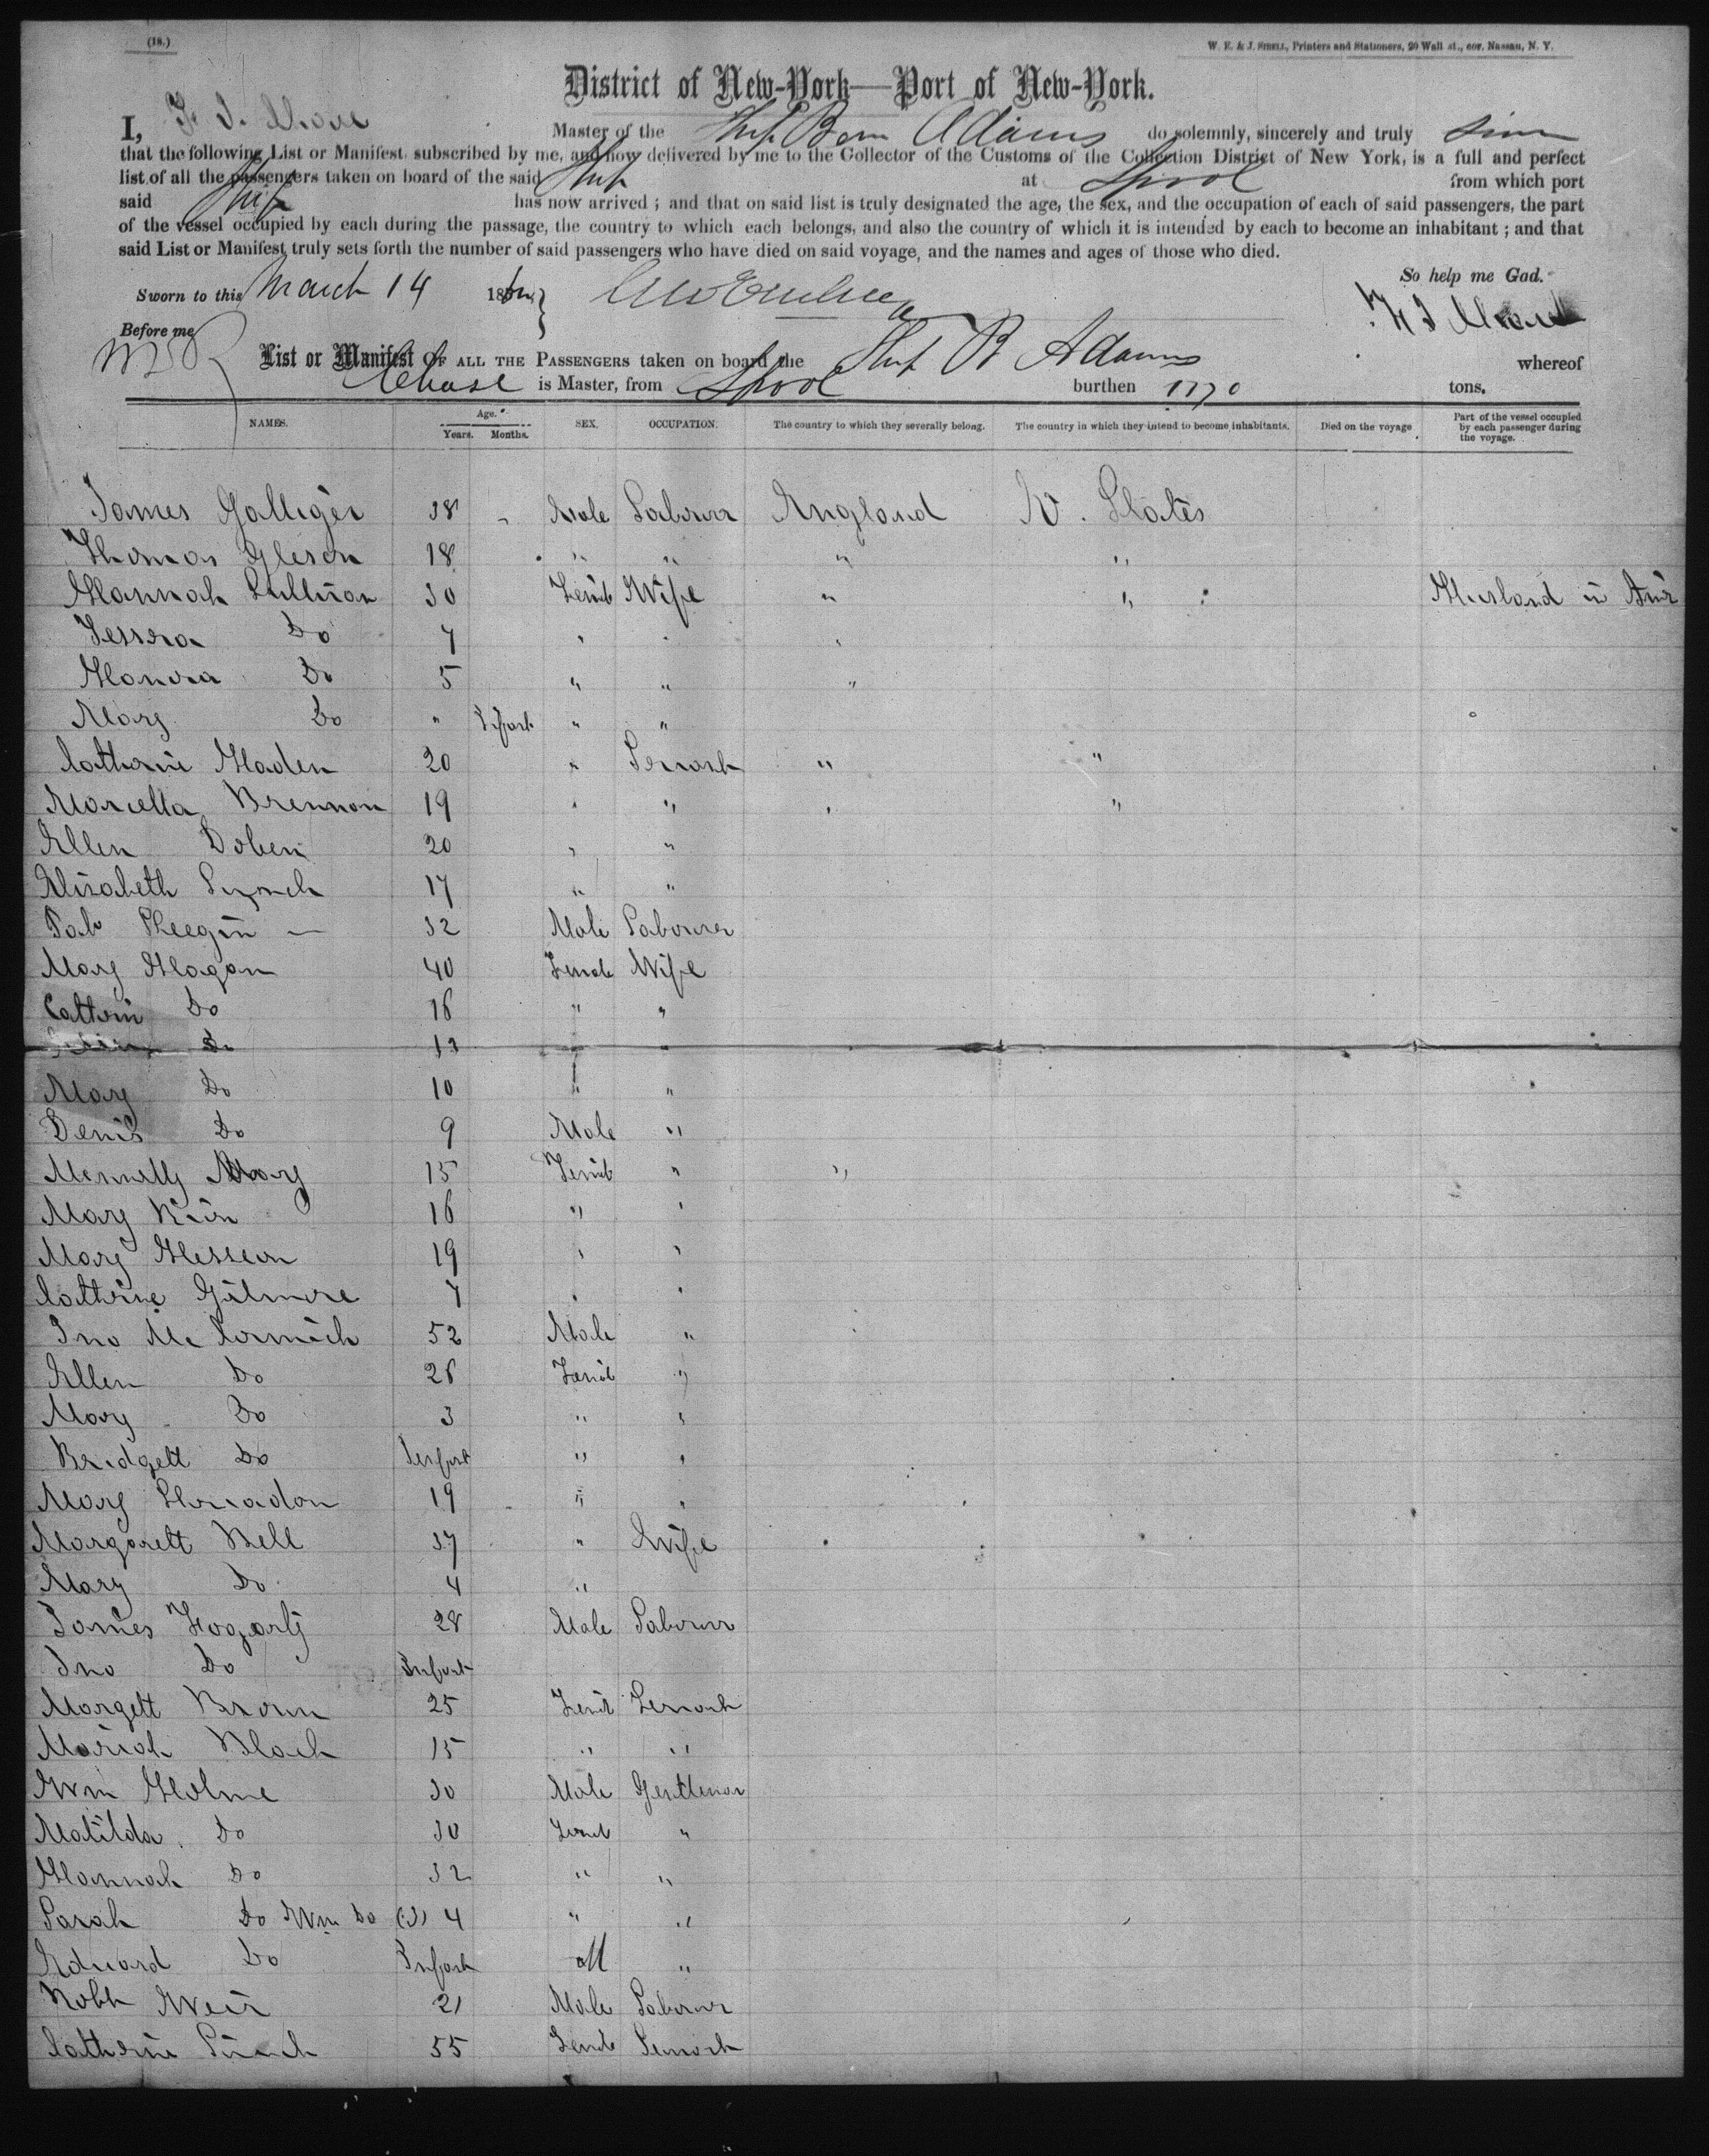 (18.)
W. E. & J. SIBELL, Printers and Stationers, 20 Wall st., cor. Nassau, N. Y.
District of New-York—Port of New-York.
I, Master of the Ship Benn Adams do solemnly, sincerely and truly
that the following List or Manifest, subscribed by me, and now delivered by me to the Collector of the Customs of the Collection District of New York, is a full and perfect
list of all the passengers taken on board of the said Ship at Lpool from which port
said Ship has now arrived ; and that on said list is truly designated the age, the sex, and the occupation of each of said passengers, the part
of the vessel occupied by each during the passage, the country to which each belongs, and also the country of which it is intended by each to become an inhabitant ; and that
said List or Manifest truly sets forth the number of said passengers who have died on said voyage, and the names and ages of those who died.
So help me God.
Sworn to this March 14 18
Before me
List or Manifest OF ALL THE PASSENGERS taken on board the Ship B Adams whereof
Chase is Master, from Lpool burthen 1170 tons.
NAMES. Age. Years. Months. SEX. OCCUPATION. The country to which they severally belong. The country in which they intend to become inhabitants. Died on the voyage Part of the vessel occupied by each passenger during the voyage.
James Galliger 38 " Male Labourer England U. States
Thomas Gleson 18 " " " "
Hannah Sullivan 30 Female Wife " " Husband in
Do 7 " " "
Honora Do 5 " " "
Mary Do " Infant " "
Catherine Haden 20 " Servant " "
Marcella Brennan 19 " " " "
Ellen Doben 20 " "
Elisabeth Lynch 17 " "
Pat 32 Male Labourer
Mary Hagan 40 Female Wife
Do 16 " "
Do 13 " "
Mary Do 10 " "
Denis Do 9 Male "
Mary 15 Female " "
Mary 16 " "
Mary Hession 19 " "
Catherine Gilmore 7 " "
Jno McCormick 52 Male "
Ellen Do 26 Female "
Mary Do 3 " "
Bridgett Do Infant " "
Mary 19 " "
Margarett Bell 37 " Wife
Mary Do 4 "
James Fogarty 28 Male Labourer
Jno Do Infant
Margett Brown 25 Female Servant
Mariah Black 15 " "
Wm Holme 30 Male Gentleman
Matilda Do 30 Female "
Hannah Do 32 " "
Sarah Do Wm Do (3) 4 " "
Edward Do Infant M "
Robt Weir 21 Male Labourer
Catherine 55 Female Servant